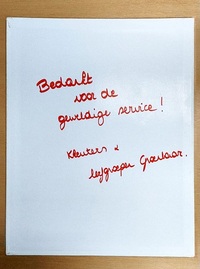 Bedankt
voor de
geweldige service!
Kleuters &
leefgroepen Groenlaar.